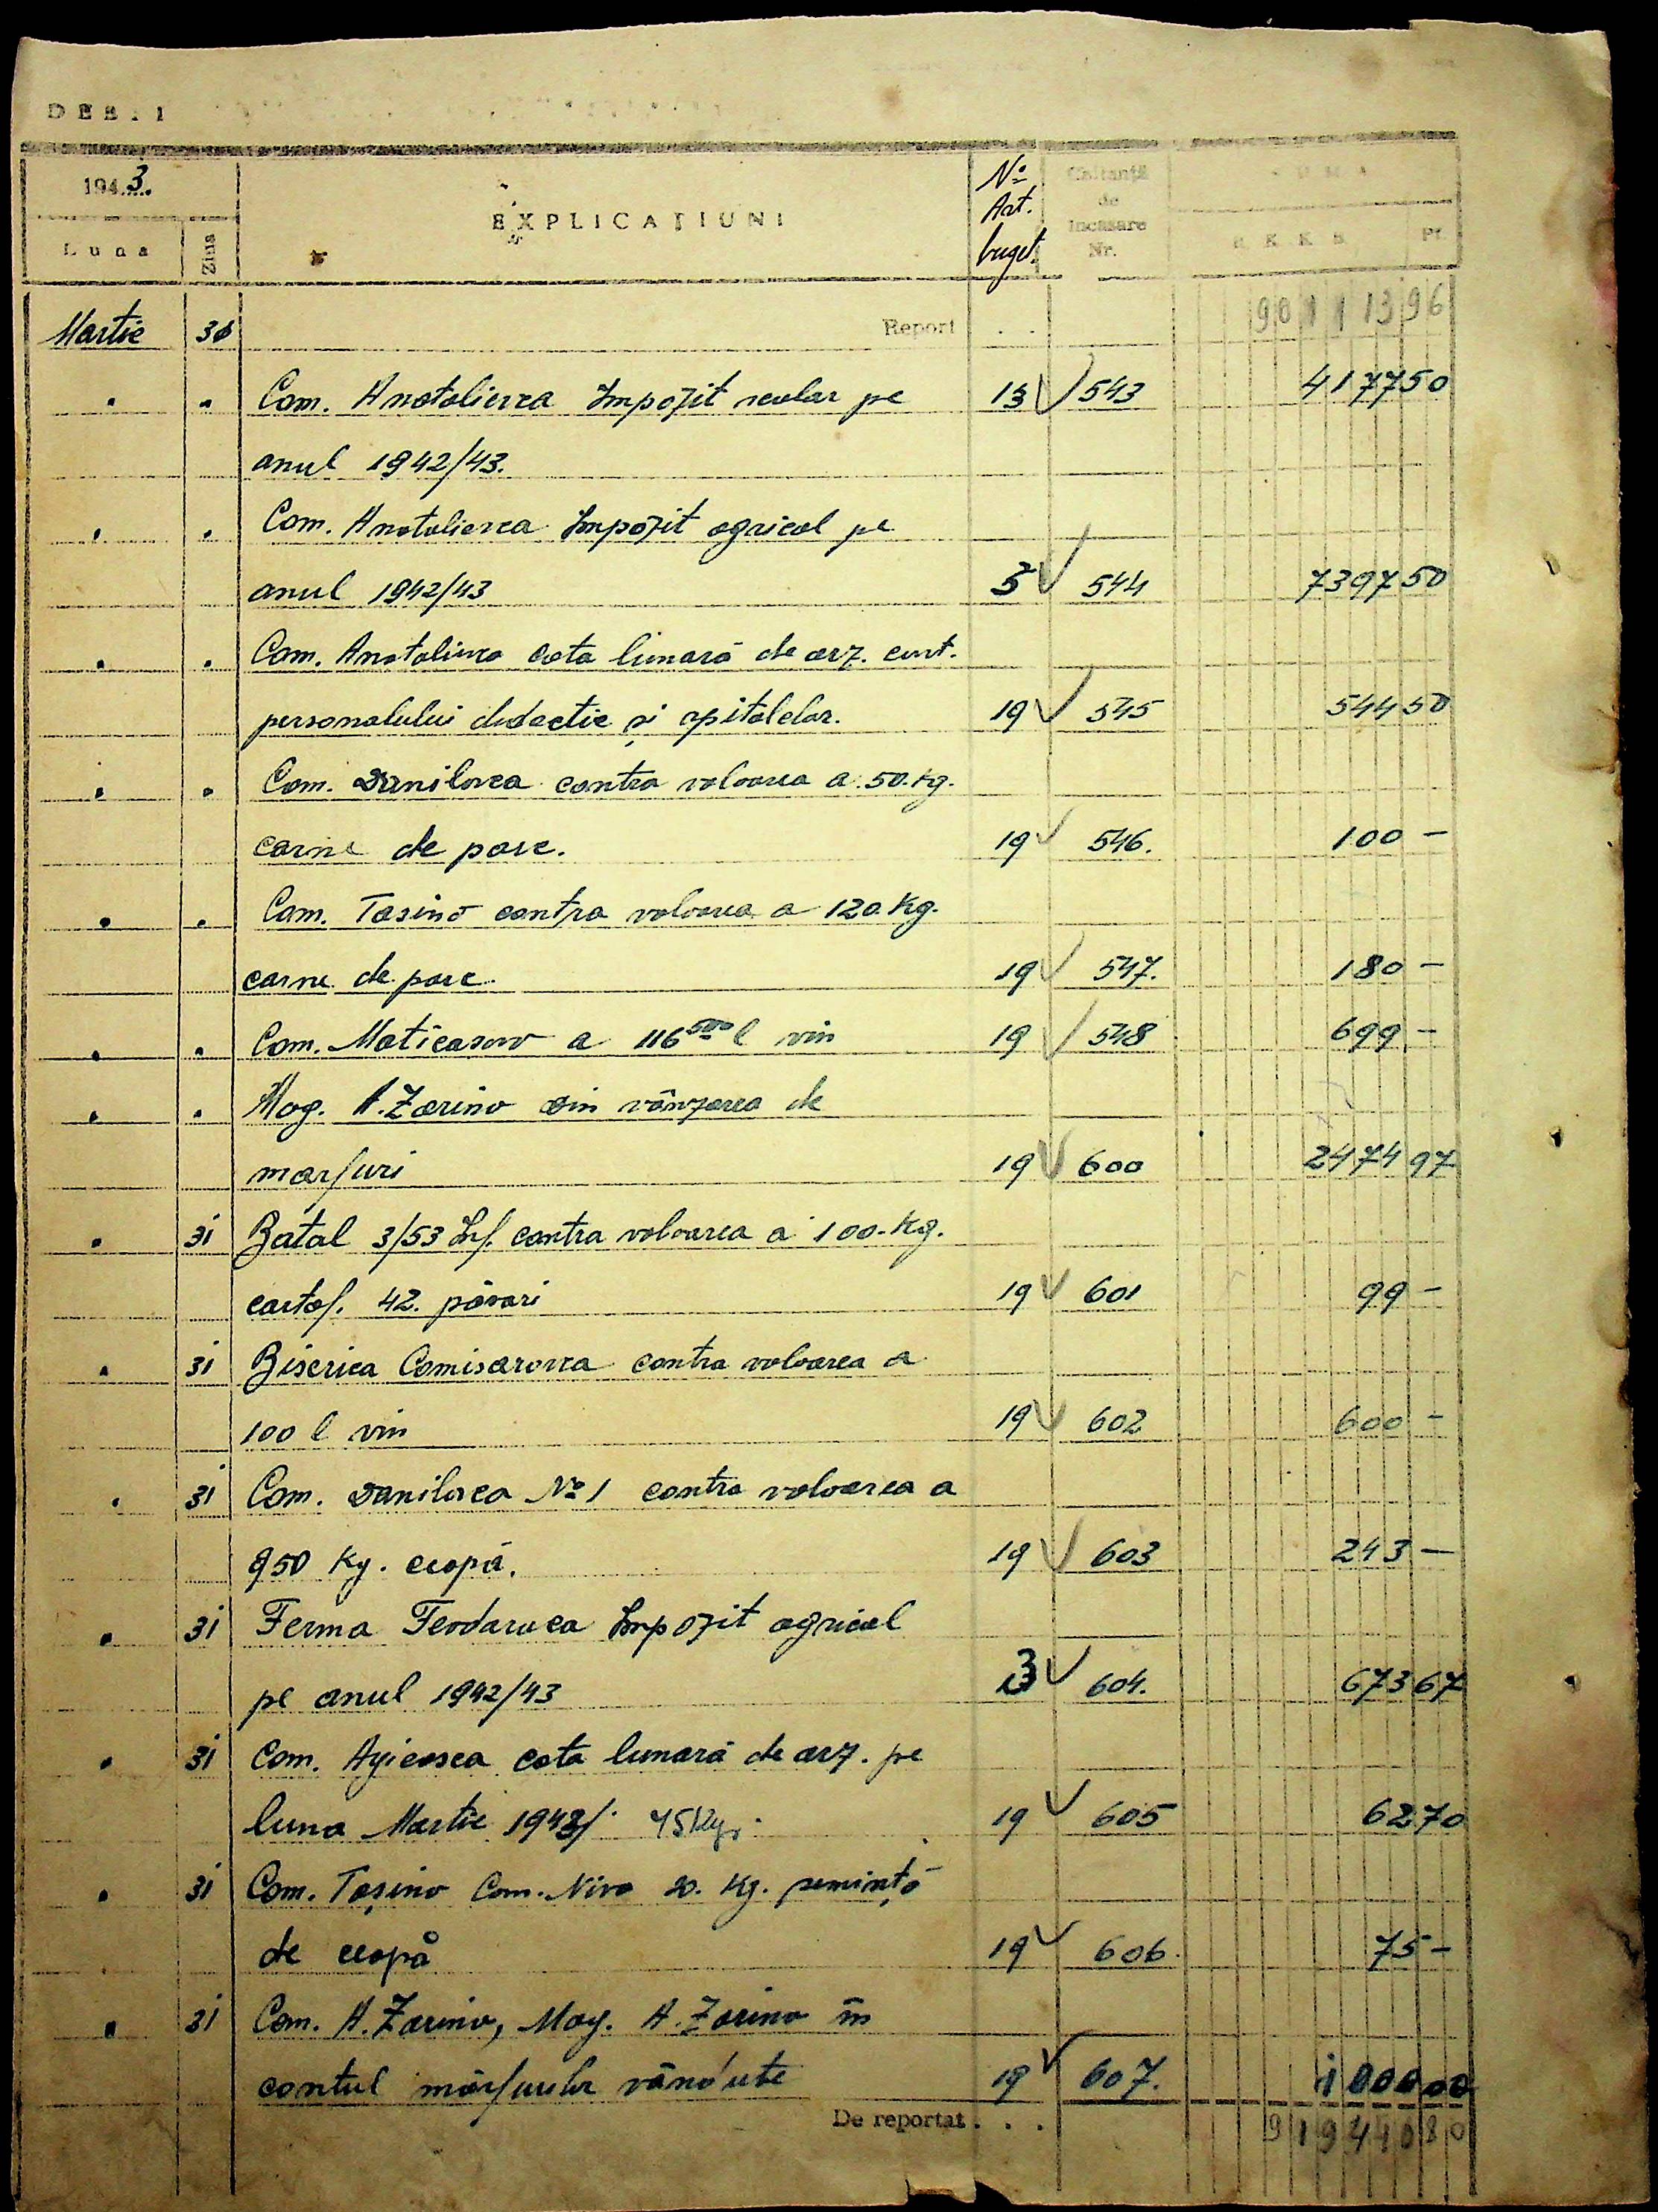 DEBIT
1943.
Luna Ziua EXPLICAȚIUNI No Art. buget. Chitanță de Incasare Nr. SUMA R.K.K.S. Pf.
Martie 30 Report . . 90111396
" " Com. Anatolievca Impozit scolar pe 13 543 417750
anul 1942/43.
" " Com. Anatolievca Impozit agricol pe
anul 1942/43 3 544 739750
" " Com. Anatolievca Cota lunară de arz. cuvt.
personalului didactic și spitalelor. 19 545 54450
" " Com. Danilovca contra valoarea a 50.kg.
carne de porc. 19 546. 100 —
" " Com. Tasino contra valoarea a 120 kg.
carne de porc. 19 547. 180 —
" " Com. Maticasovo a 116 500 l vin 19 548 699 —
" " Mag. A. Zarino din vânzarea de
marfuri 19 600 247497
" 31 Batal 3/53 Inf. contra valoarea a 100.kg.
cartof. 42. păsari 19 601 99 —
" 31 Biserica Comisarovca contra valoarea a
100 l vin 19 602 600 —
" 31 Com. Danilovca No 1 contra valoarea a
950 kg. ceapă. 19 603 243 —
" 31 Ferma Impozit agricol
pe anul 1942/43 3 604. 67367
" 31 Com. cota lunară de arz. pe
luna Martie 1943/. 45 kg. 19 605 6270
" 31 Com. Tașino Com. Niva 20. kg. semință
de ceapă 19 606. 75 —
" 31 Com. A. Zarino, Mag. A. Zarino în
contul mărfurilor vândute 19 607. 100000
De reportat . . . 91944080